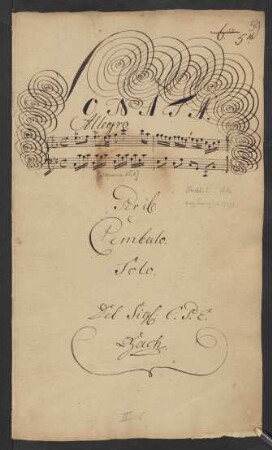 5
SONATA.
Allegro
Per il
Cembalo.
Solo.
Del Sig. C. P. E.
Bach.